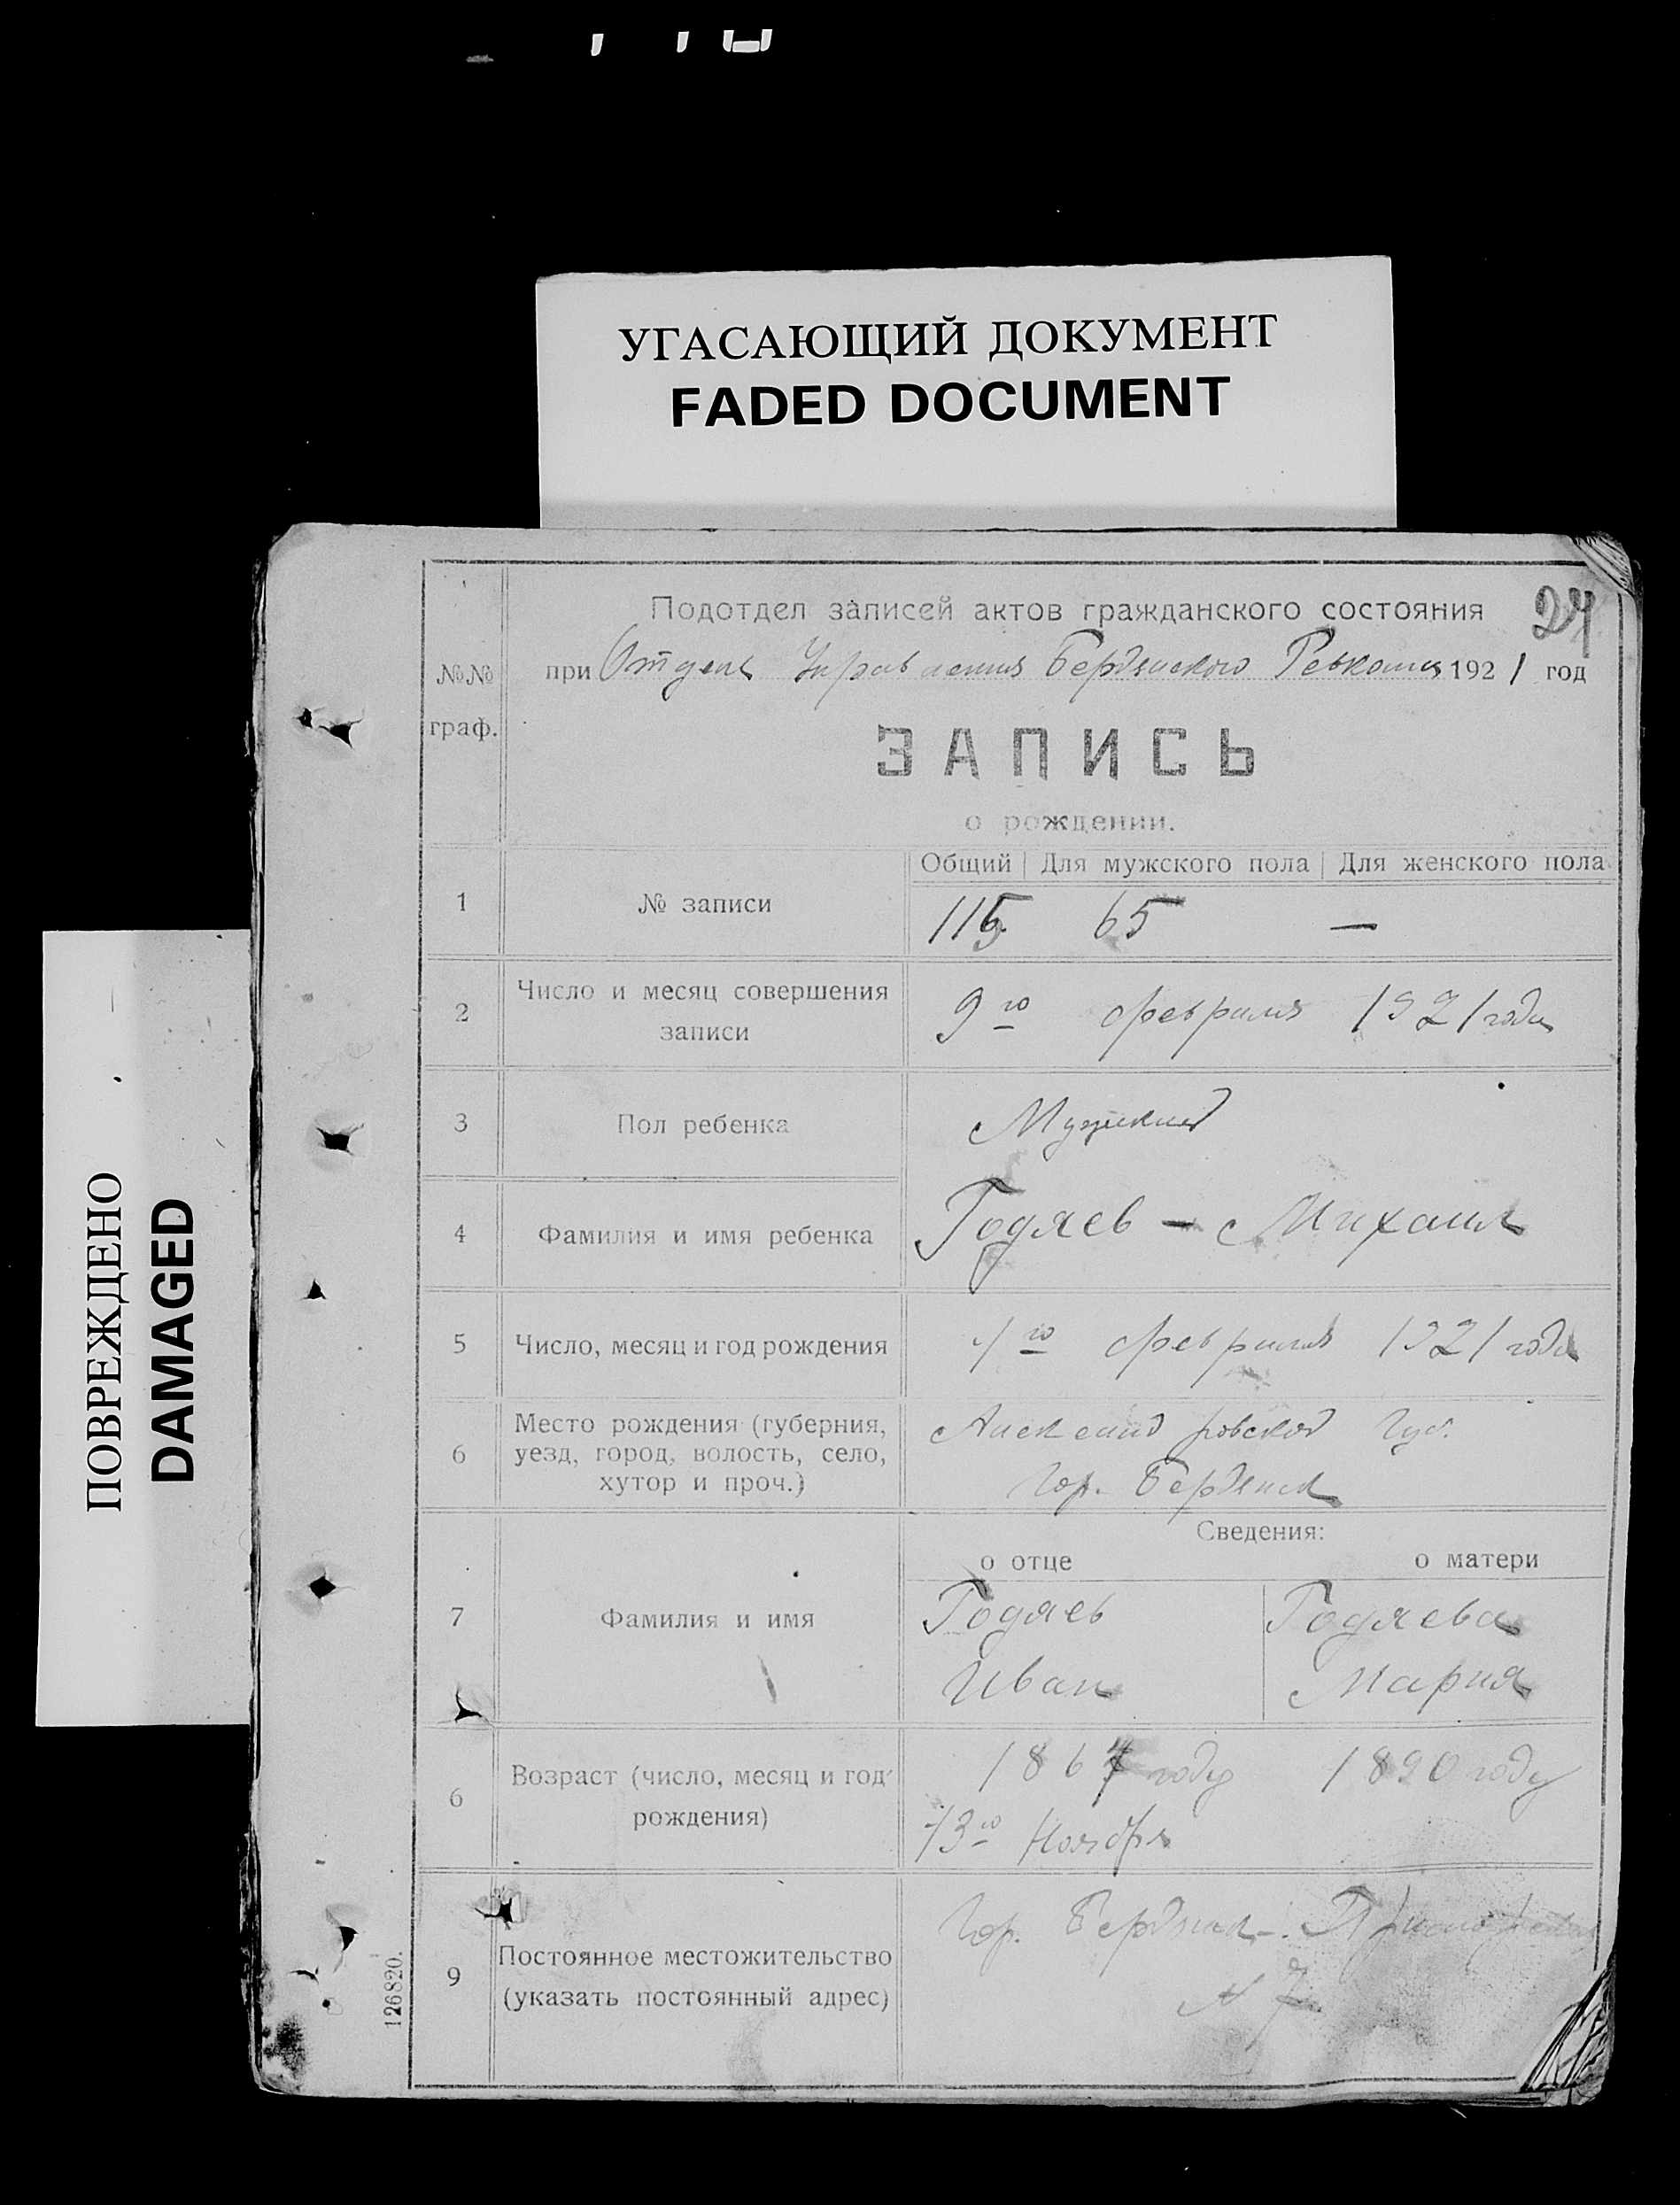 УГАСАЮЩИЙ ДОКУМЕНТ
FADED DOCUMENT
ПОВРЕЖДЕНО
DAMAGED
27
Подотдел записей актов гражданского состояния
№№ граф.
при Отделе Управления Бердянского Ревкома 1921 год
ЗАПИСЬ
о рождении.
Общий Для мужского пола Для женского пола
1 № записи 115 65 —
2 Число и месяц совершения
записи
9го февраля 1921 года
3 Пол ребенка Мужской
4 Фамилия и имя ребенка Годяев — Михаил
5 Число, месяц и год рождения го февраля 1921 года
6 Место рождения (губерния,
уезд, город, волость, село,
хутор и проч.)
Александровской Губ.
Гор. Бердянск
Сведения:
о отце о матери
7 Фамилия и имя
Годяев Годяева
Иван Мария
6 Возраст (число, месяц и год
рождения)
1867 году 1890 году
13го Ноября
9 Постоянное местожительство
(указать постоянный адрес)
Гор. Бердянск -
N 7
126820.